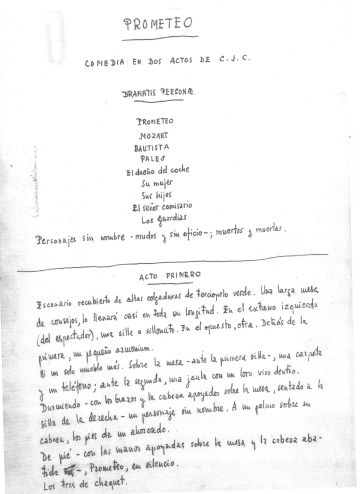 PROMETEO
COMEDIA EN DOS ACTOS DE C.J.C.
DRAMATIS PERSONÆ
PROMETEO
MOZART
BAUTISTA
PALES
El dueño del coche
Su mujer
Sus hijos
El señor comisario
Los guardias
Personajes sin nombre - mudos y sin oficio -; muertos y muertas.
ACTO PRIMERO
Escenario recubierto de altas colgaduras de terciopelo verde. Una larga mesa
de consejos, lo llenará casi en toda su longitud. En el extremo izquierdo
(del espectador), una silla o silloncito. En el opuesto, otra. Detrás de la
primera, un pequeño armonium.
Ni un solo mueble más. Sobre la mesa - ante la primera silla -, una carpeta
y un teléfono; ante la segunda, una jaula con un loro vivo dentro.
Durmiendo - con los brazos y la cabeza apoyados sobre la mesa, sentado a la
silla de la derecha - un personaje sin nombre. A un palmo sobre su
cabeza, los pies de un ahorcado.
De pie - con las manos apoyadas sobre la mesa y la cabeza aba-
tida -, Prometeo, en silencio.
Los tres de chaquet.